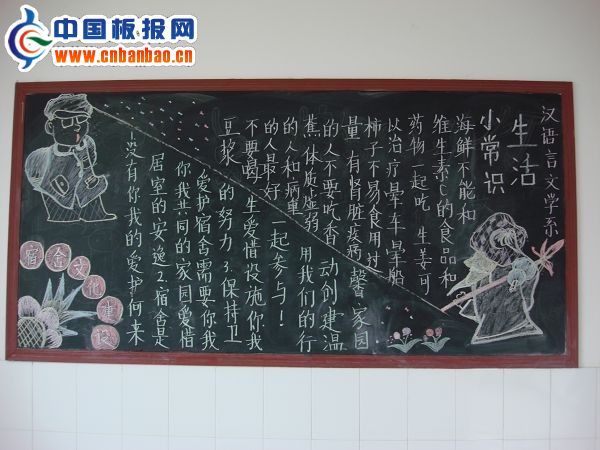 中国板报网
www.cnbanbao.cn
汉语言文学系
生活
小常识
海鲜不能和
维生素C的食品和
药物一起吃 生姜可
以治疗晕车晕船
柿子不易食用过
量 有肾脏疾病
的人不要吃香
蕉 体质虚弱
的人和病重
的人最好
不要喝
豆浆
1.没有你我的爱护何来
居室的安逸2.宿舍是
你我共同的家园爱惜
爱护宿舍需要你我
的努力 3.保持卫
生爱惜设施你我
一起参与!
用我们的行
动创建温
馨家园
宿舍文化建设